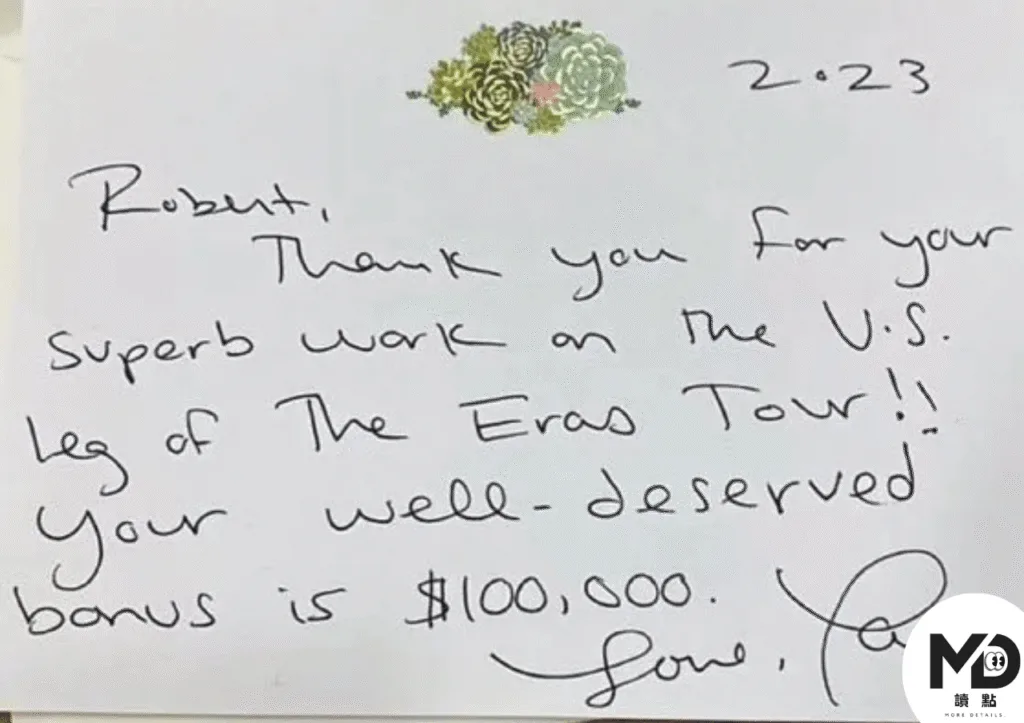 2.23
Robert,
Thank you for your
superb work on the U.S.
leg of The Eras Tour!!
Your well-deserved
bonus is $100,000.
Love,
MD
讀點
MORE DETAILS.